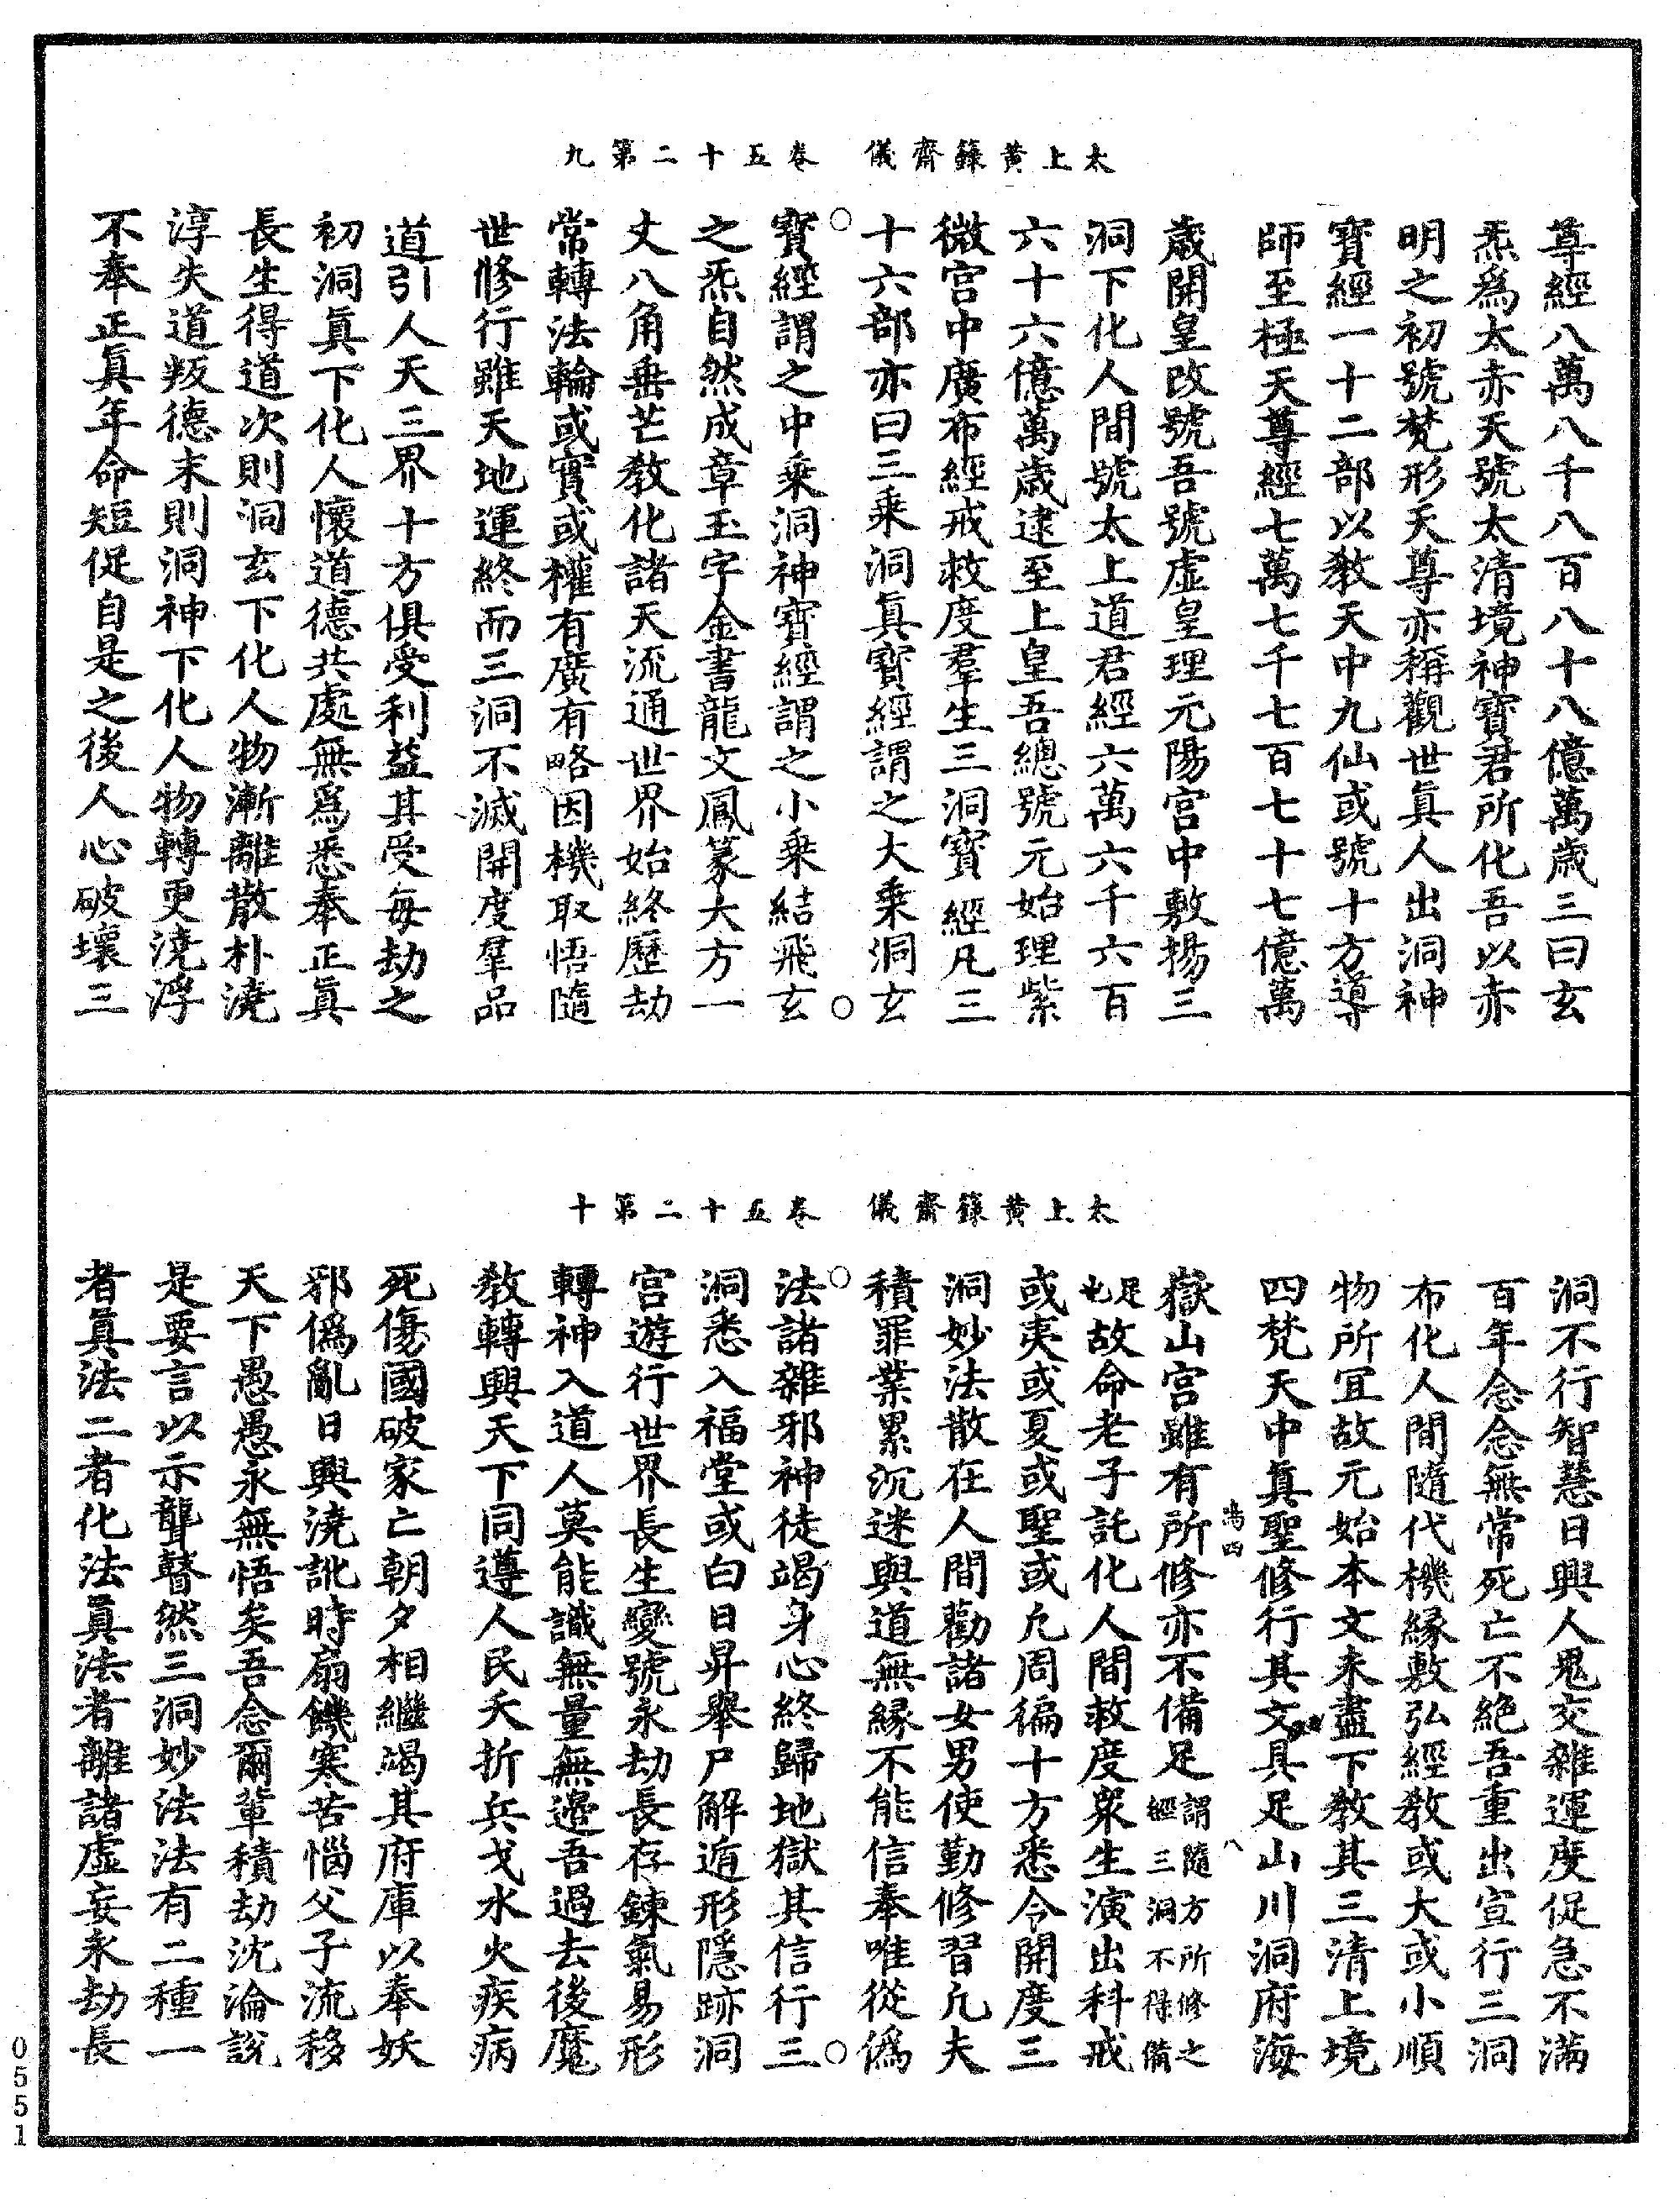 太上黃籙齋儀　卷五十二第九
尊經八萬八千八百八十八億萬歲三曰玄
炁爲太赤天號太清境神寶君所化吾以赤
明之初號梵形天尊亦稱觀世眞人出洞神
寶經一十二部以教天中九仙或號十方導
師至極天尊經七萬七千七百七十七億萬
歲開皇改號吾號虛皇理元陽宮中敷揚三
洞下化人間號太上道君經六萬六千六百
六十六億萬歲逮至上皇吾總號元始理紫
微宮中廣布經戒救度羣生三洞寶經凡三
十六部亦曰三乘洞眞寶經謂之大乘洞玄
寶經謂之中乘洞神寶經謂之小乘結飛玄
之炁自然成章玉字金書龍文鳳篆大方一
丈八角垂芒教化諸天流通世界始終歷劫
常轉法輪或實或權有廣有略因機取悟隨
世修行雖天地運終而三洞不滅開度羣品
道引人天三界十方俱受利益其受每劫之
初洞眞下化人懷道德共處無爲悉奉正眞
長生得道次則洞玄下化人物漸離散朴澆
淳失道叛德末則洞神下化人物轉更澆浮
不奉正眞年命短促自是之後人心破壞三
太上黃籙齋儀　卷五十二第十
洞不行智慧日興人鬼交雜運度促急不滿
百年念念無常死亡不絕吾重出宣行三洞
布化人間隨代機緣敷弘經教或大或小順
物所宜故元始本文未盡下教其三清上境
四梵天中眞聖修行其文具足山川洞府海
嶽山宮雖有所修亦不備足謂隨方所修之經三洞不得備
足也故命老子託化人間救度衆生演出科戒
或夷或夏或聖或凢周徧十方悉令開度三
洞妙法散在人間勸諸女男使勤修習凢夫
積罪業累沉迷與道無緣不能信奉唯從僞
法諸雜邪神徒竭身心終歸地獄其信行三
洞悉入福堂或白日昇舉尸解遁形隱跡洞
宮遊行世界長生變號永劫長存鍊氣易形
轉神入道人莫能識無量無邊吾過去後魔
教轉興天下同遵人民夭折兵戈水火疾病
死傷國破家亡朝夕相繼竭其府庫以奉妖
邪僞亂日興澆訛時扇饑寒苦惱父子流移
天下愚愚永無悟矣吾念爾輩積劫沈淪說
是要言以示聾瞽然三洞妙法法有二種一
者眞法二者化法眞法者離諸虛妄永劫長
0551